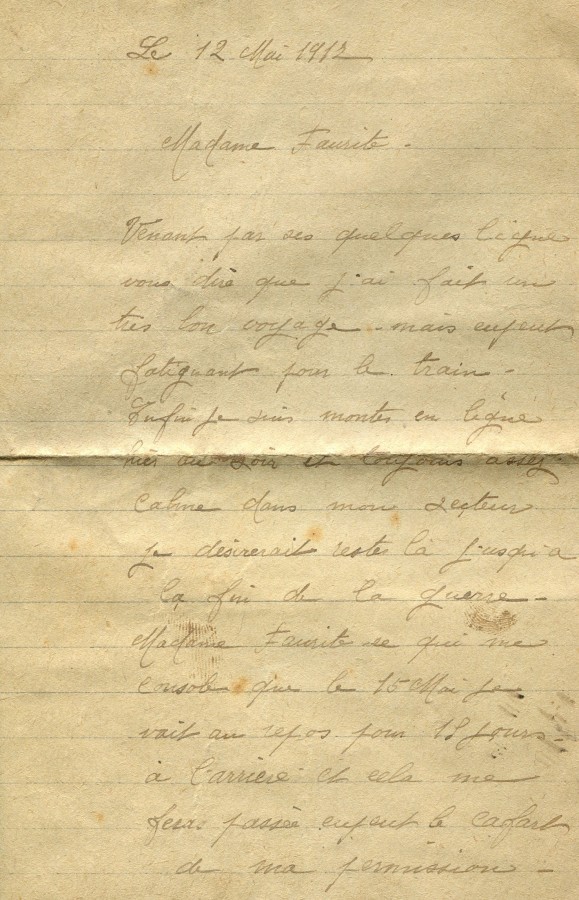 Le 12 Mai 1917
Madame Faurite -
Venant par ses quelques ligne
vous dire que j'ai fait un
très bon voyage - mais enpeut
fatiguant pour le train -
Enfin je suis montes en ligne
hier au soir et toujours assez
calme dans mon secteur
je désirerait rester là jusqu'a
la fin de la guerre -
Madame Faurite ce qui me
console que le 15 Mai je
vait au repos pour 15 jours
à l'arrière et cela me
feras passée enpeut le cafart
de ma permission -